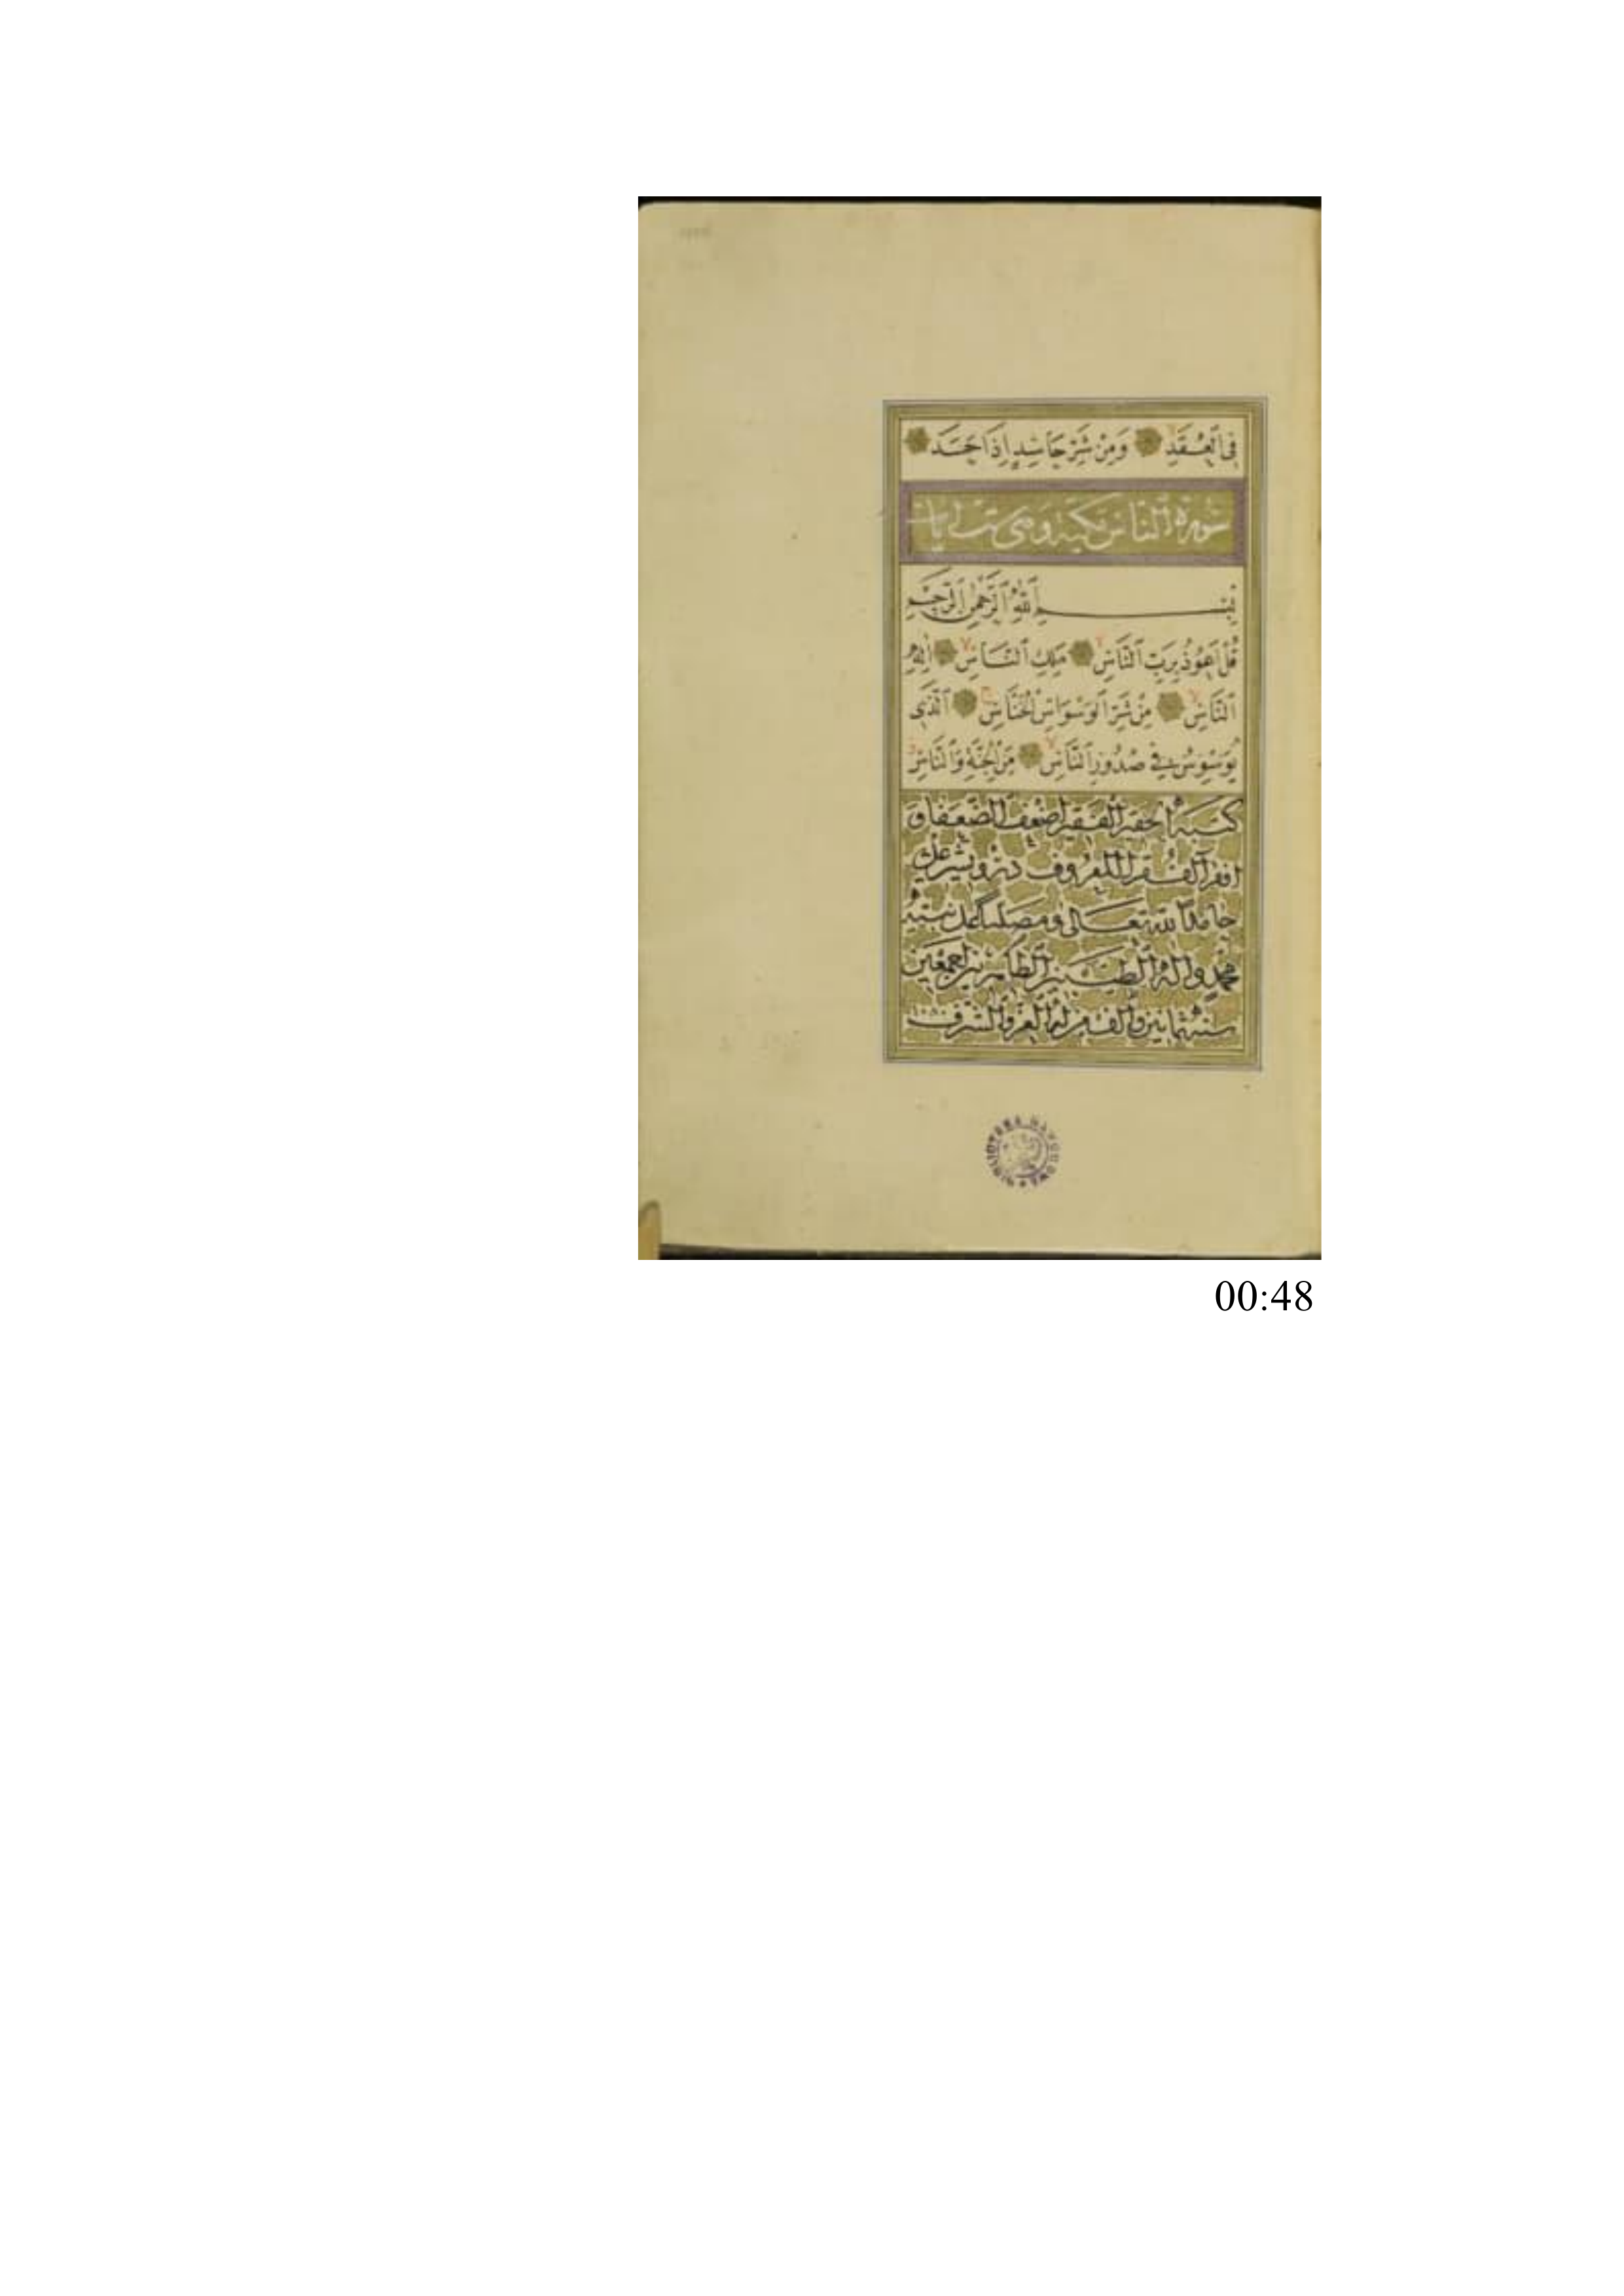 فِي الْعُقَدِ وَمِنْ شَرِّ حَاسِدٍ اِذَا حَسَدَ
سورة الناس مكية وهي ست ايات
بِسْمِ اللهِ الرَّحْمٰنِ الرَّحِيمِ
قُلْ اَعُوذُ بِرَبِّ النَّاسِ مَلِكِ النَّاسِ اِلٰهِ
النَّاسِ مِنْ شَرِّ الْوَسْوَاسِ الْخَنَّاسِ الَّذِي
يُوَسْوِسُ فِي صُدُورِ النَّاسِ مِنَ الْجِنَّةِ وَالنَّاسِ
كتبه الحقير الفقير اضعف الضعفا و
افقر الفقرا المعروف درويش علي
حامدا لله تعالى ومصليا على نبيه
محمد واله الطيبين الطاهرين اجمعين
سنة ثمانين والف من له العز والشرف ١٠٨٠
BIBLIOTEKA NARODOWA
00:48